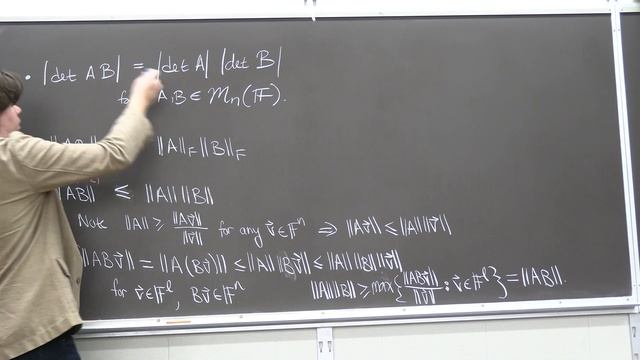 • |det AB| = |det A| |det B|
A, B ∈ Mₙ(𝔽).
‖A‖_F ‖B‖_F
‖AB‖ ≤ ‖A‖ ‖B‖
Note ‖A‖ ≥ ‖Av⃗‖/‖v⃗‖ for any v⃗ ∈ 𝔽ⁿ ⇒ ‖Av⃗‖ ≤ ‖A‖ ‖v⃗‖
‖ABv⃗‖ = ‖A(Bv⃗)‖ ≤ ‖A‖ ‖Bv⃗‖ ≤ ‖A‖ ‖B‖ ‖v⃗‖
for v⃗ ∈ 𝔽ˡ, Bv⃗ ∈ 𝔽ⁿ
‖A‖ ‖B‖ ≥ max{‖ABv⃗‖/‖v⃗‖ : v⃗ ∈ 𝔽ˡ} = ‖AB‖.